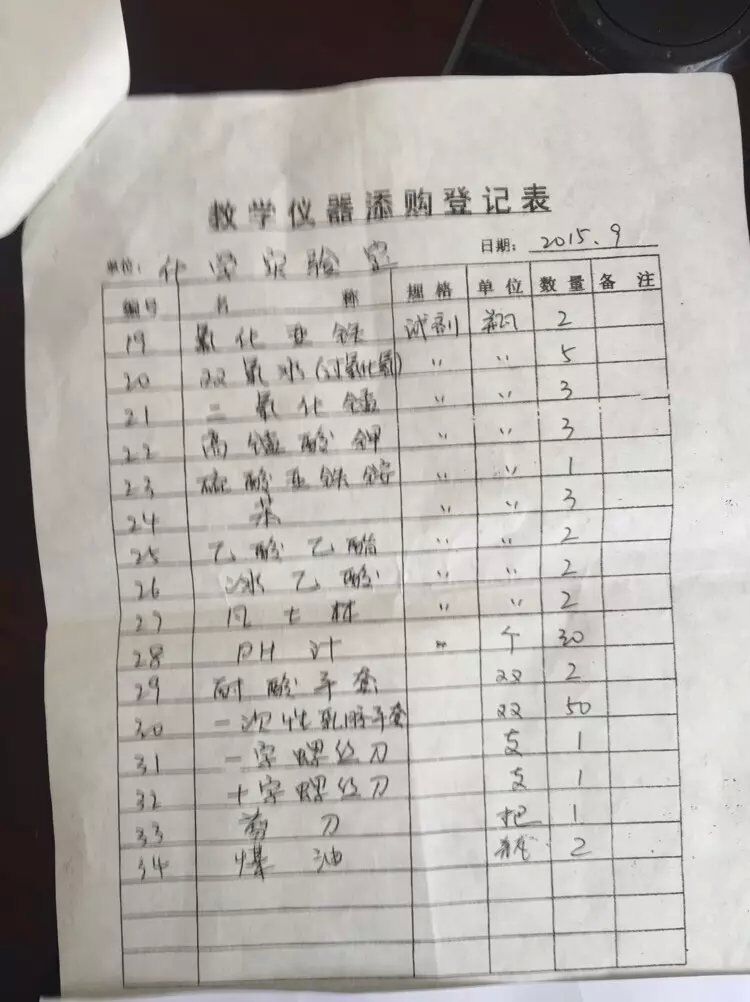 教学仪器添购登记表
单位: 化学实验室 日期: 2015.9
编号 名称 规格 单位 数量 备注
19 氧化亚铁 试剂 瓶 2
20 双氧水(过氧化氢) 〃 〃 5
21 二氧化锰 〃 〃 3
22 高锰酸钾 〃 〃 3
23 硫酸亚铁铵 〃 〃 1
24 苯 〃 〃 3
25 乙酸乙酯 〃 〃 2
26 冰乙酸 〃 〃 2
27 凡士林 〃 〃 2
28 PH计 〃 个 30
29 耐酸手套 双 2
30 一次性乳胶手套 双 50
31 一字螺丝刀 支 1
32 十字螺丝刀 支 1
33 剪刀 把 1
34 煤油 瓶 2